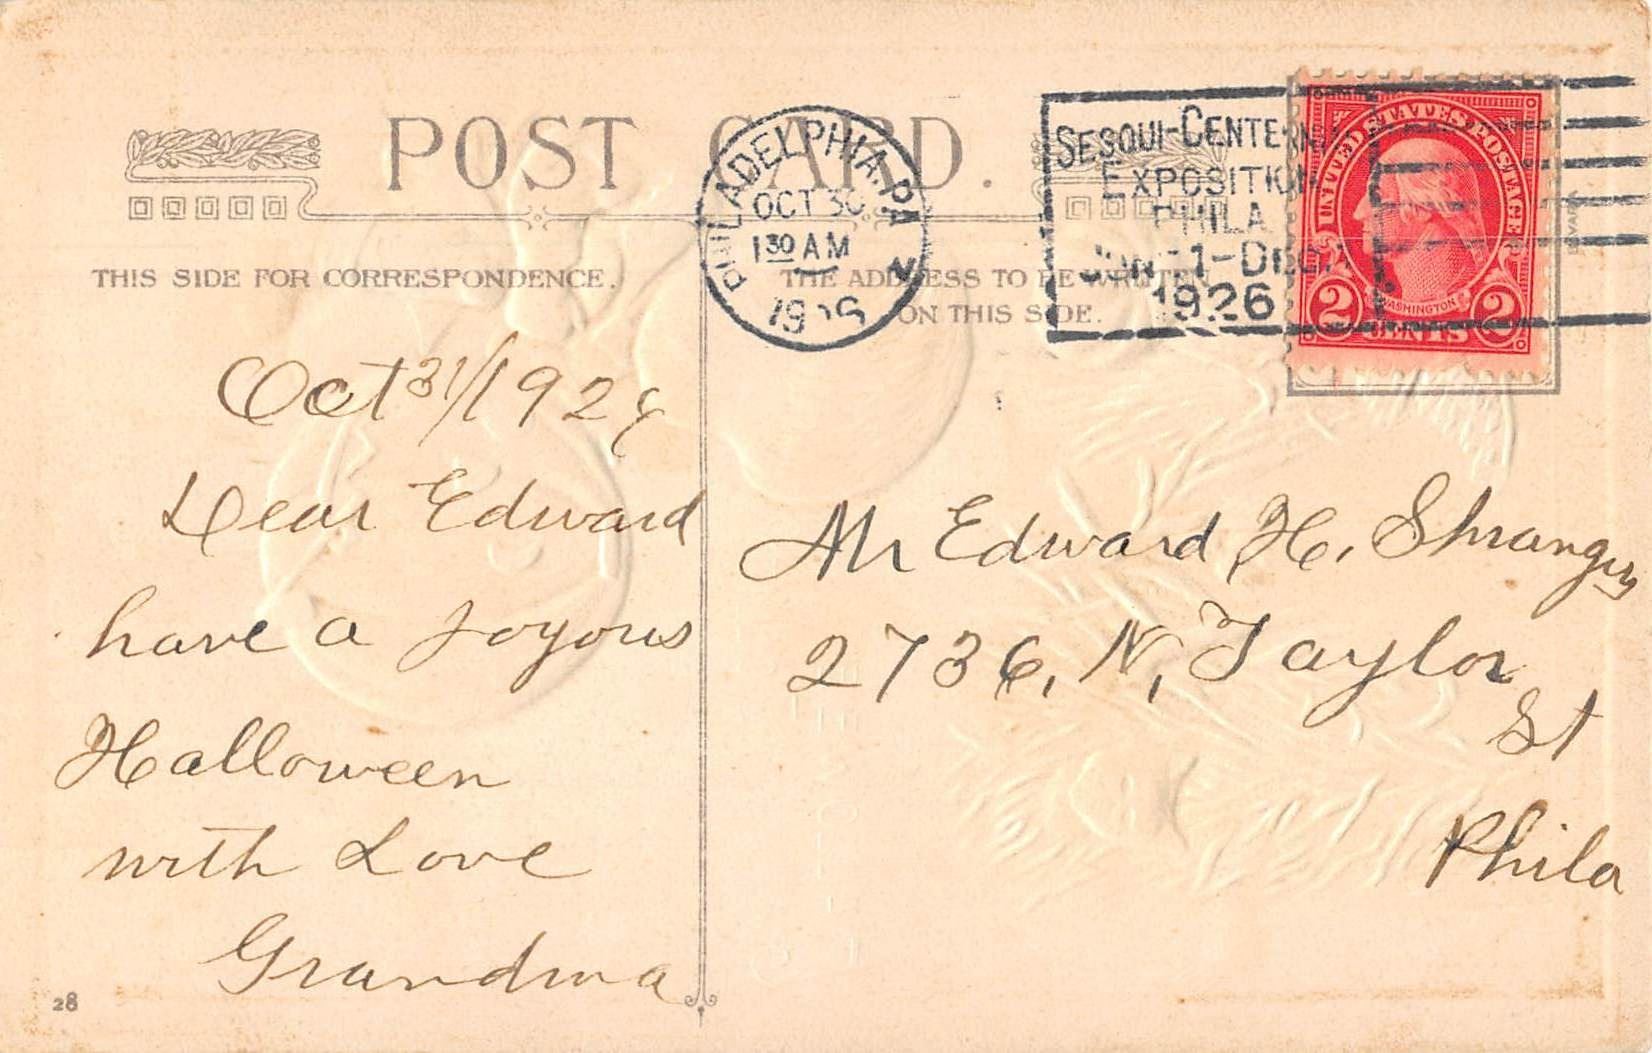 POST CARD.
THIS SIDE FOR CORRESPONDENCE.
THE ADDRESS TO BE WRITTEN
ON THIS SIDE.
PHILADELPHIA, PA
OCT 30
1 30 AM
1926
SESQUI-CENTENNI
EXPOSITION
PHILA.
JUN. 1-DEC. 1
1926
UNITED STATES POSTAGE
WASHINGTON
2 CENTS 2
Oct 31/1926
Dear Edward
have a Joyous
Halloween
with Love
Grandma
Mr Edward H.
2736, N, Taylor
St
Phila
28